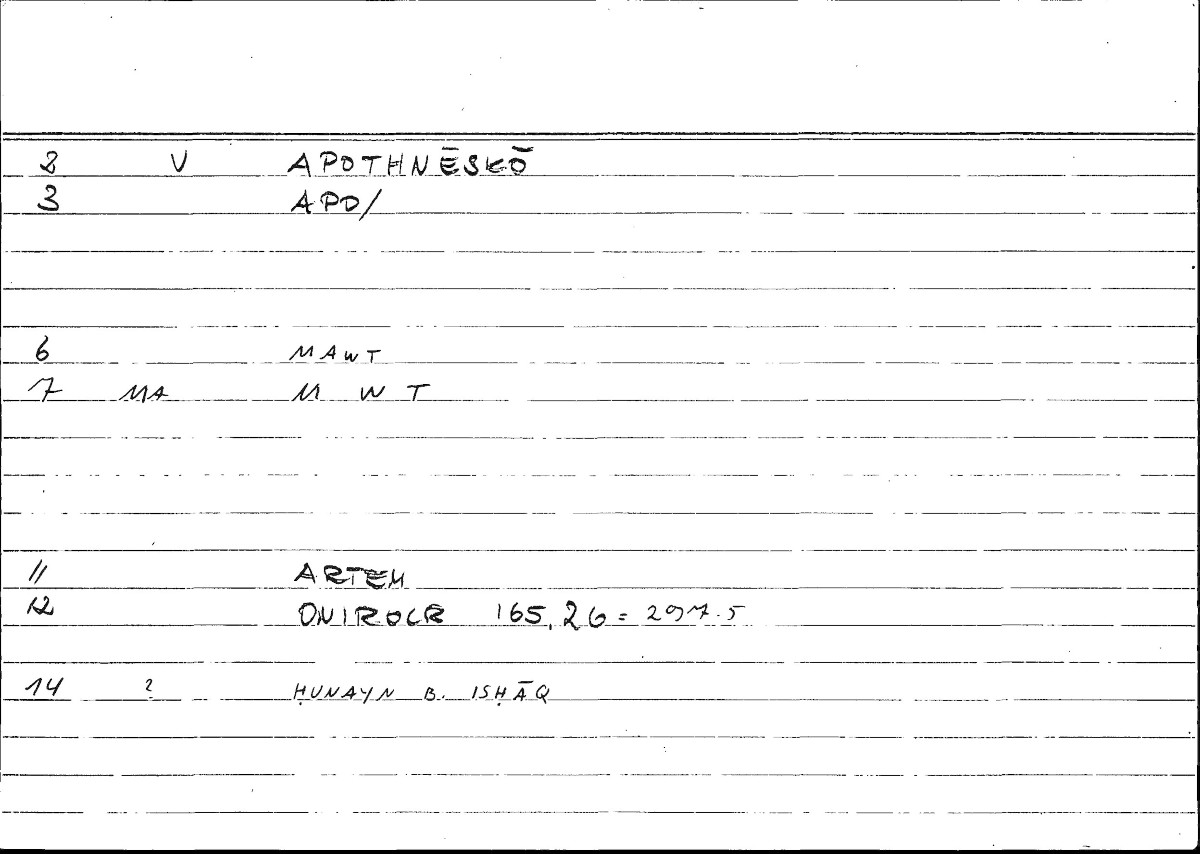 2 V APOTHNĒSKŌ
3 APO/
6 MAWT
7 MA M W T
11 ARTEM
12 ONIROCR 165,26 = 297.5
14 ? ḤUNAYN B. ISḤĀQ